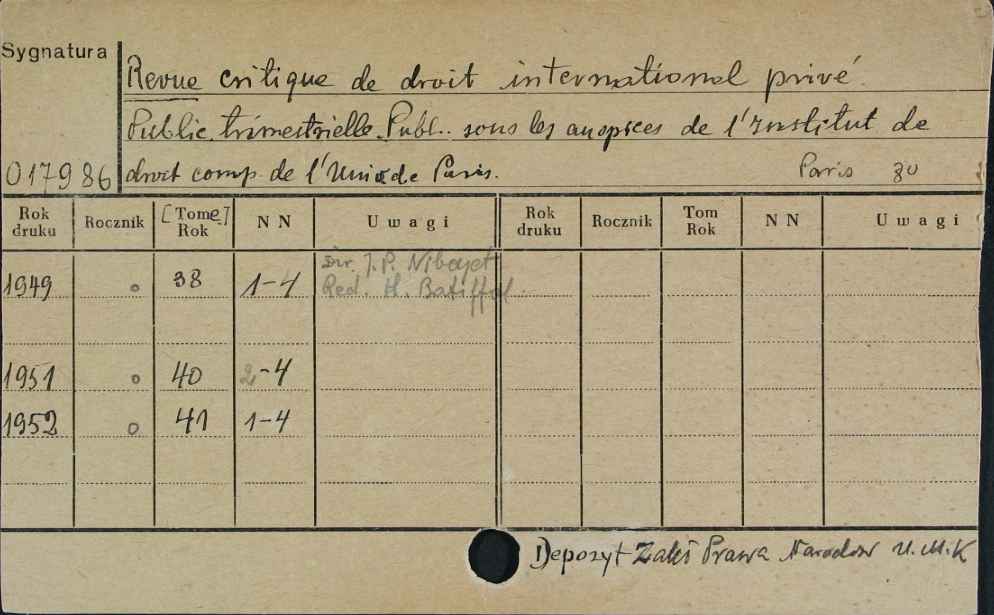 Sygnatura
Revue critique de droit international privé.
Public. trimestrielle. Publ.. sous les auspices de l'Institut de
017986 droit comp. de l'Univ. de Paris. Paris 80
Rok druku Rocznik [Tome] Rok N N Uwagi Rok druku Rocznik Tom Rok N N Uwagi
Dir. J. P. Niboyet
1949 o 38 1-4 Red. H. Batiffol
1951 o 40 2-4
1952 o 41 1-4
Depozyt Zakł Prawa Narodów U.M.K